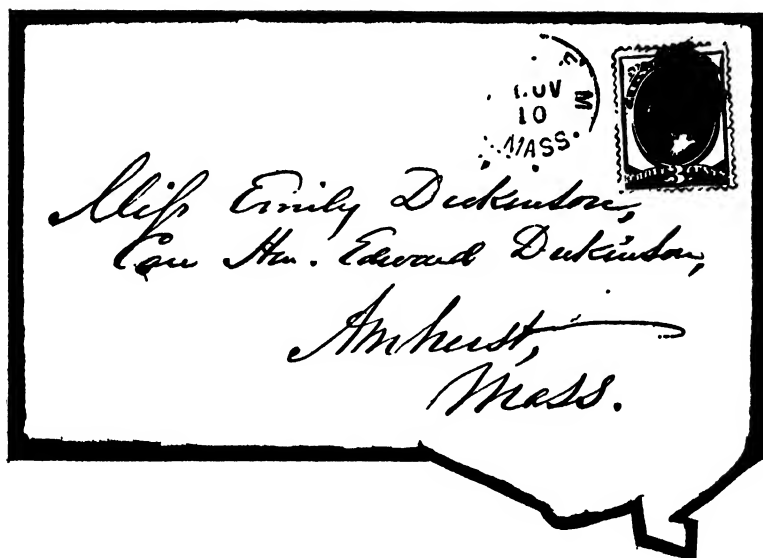 NOV
10
MASS.
3
Miss Emily Dickinson,
Care Hon. Edward Dickinson,
Amherst,
Mass.